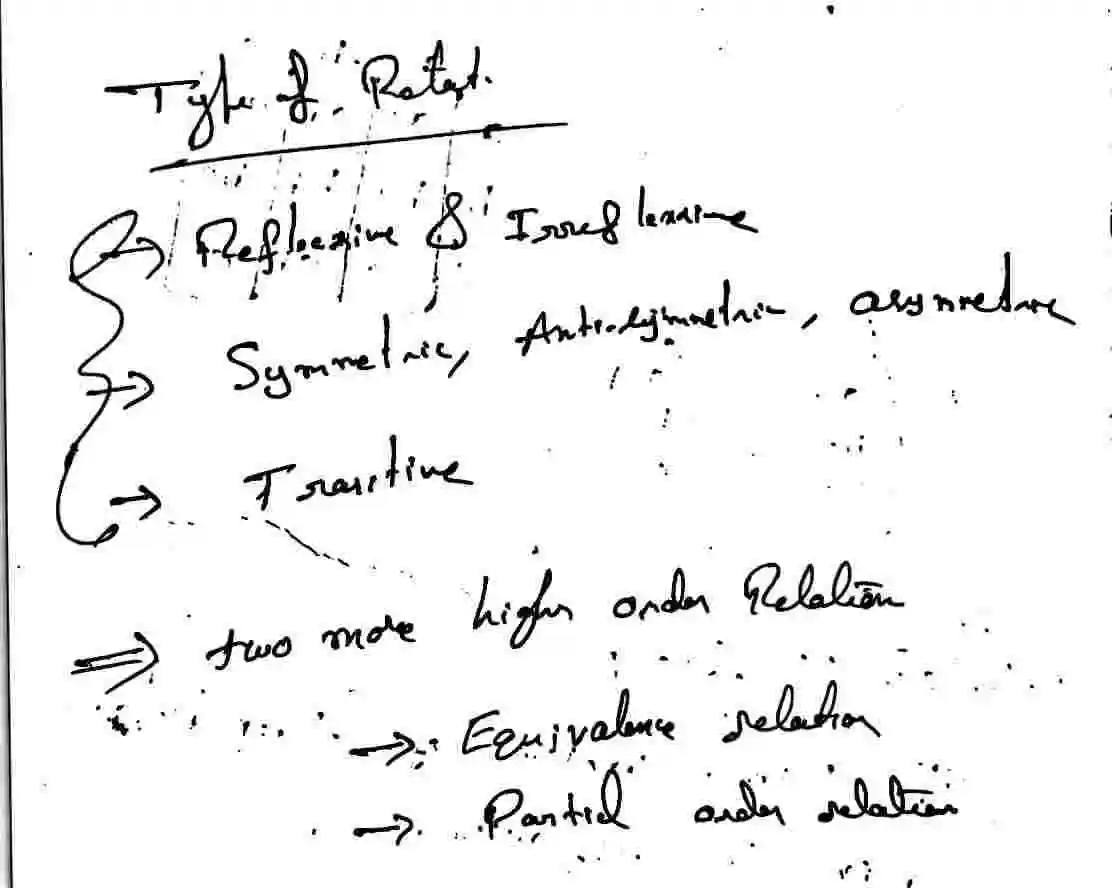 Type of Relat.
→ Reflexive & Irreflexive
→ Symmetric, Anti-symmetric, asymmetric
→ Transitive
⇒ two more higher order Relation
→ Equivalence relation
→ Partial order relation